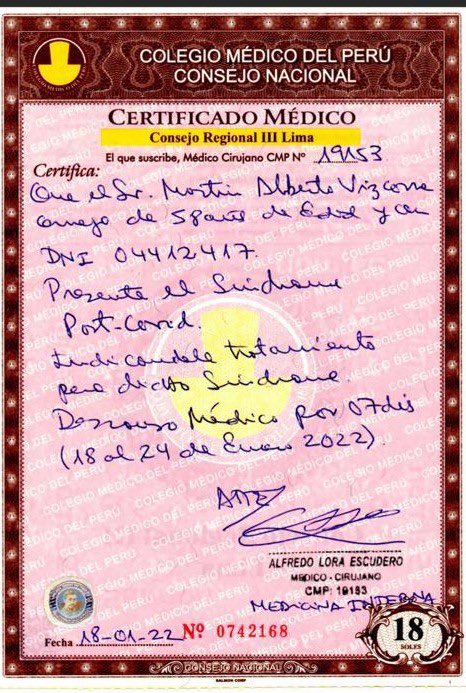 COLEGIO MÉDICO DEL PERÚ
CONSEJO NACIONAL
CERTIFICADO MÉDICO
Consejo Regional III Lima
El que suscribe, Médico Cirujano CMP Nº 19153
Certifica:
Que el Sr. Martin Alberto Vizcarra
Cornejo de 58 años de Edad y con
DNI 04412417.
Presenta el Sindrome
Post-Covid.
Indicandole tratamiento
para dicho Sindrome.
Descanso Médico por 07 dis
(18 al 24 de Enero 2022).
ATTE
ALFREDO LORA ESCUDERO
MEDICO - CIRUJANO
CMP: 19153
MEDICINA INTERNA
Fecha 18-01-22 Nº 0742168
18
SOLES
CONSEJO NACIONAL